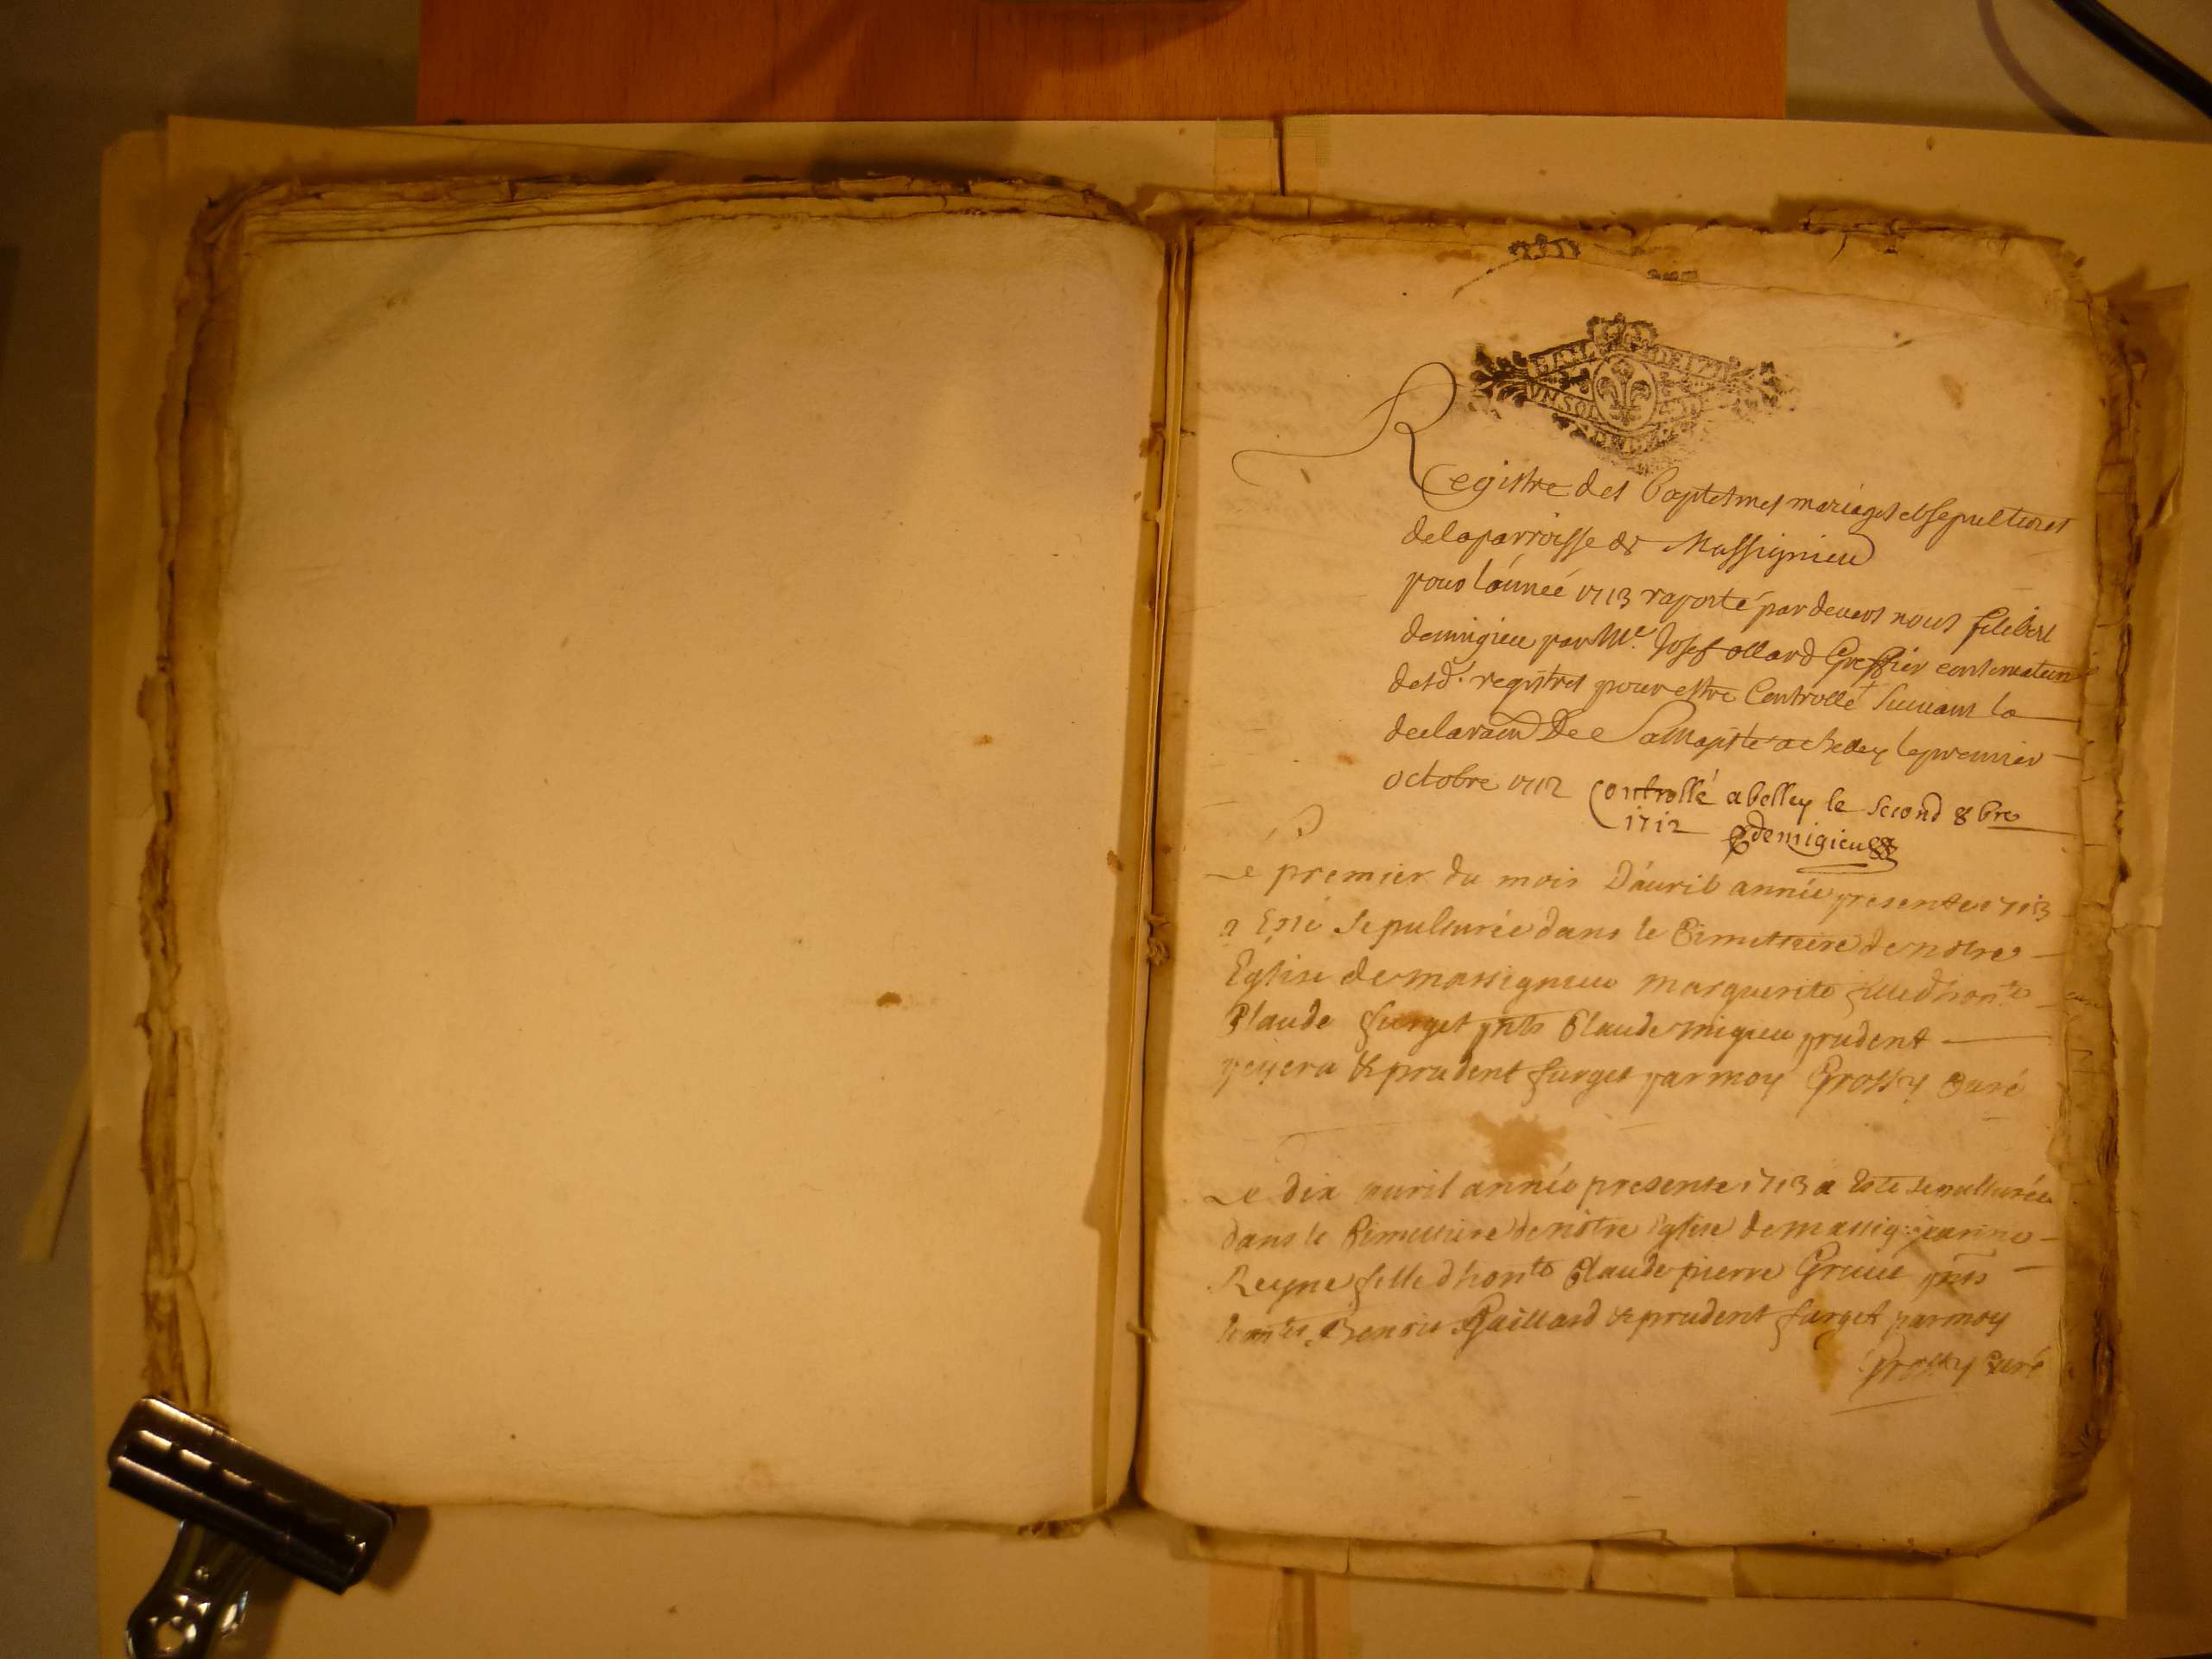 VN SOL
Registre des baptesmes mariages et sepultures
de la parroisse de Massignieu
pour lánneé 1713 raporté par devers nous filibert
demigieu par Me. Josef ollard Greffier conservateur
desd. registres pour estre Controllé suivant la
declaraon De Sa Majesté a belley le premier
octobre 1712 Controllé a belley le second 8bre
1712 demigieu
Le premier du mois Dáuril année presente 1713
a Esté sepulturée dans le Cimettiere de nôtre
Eglise de massignieu marguerite fille dhonte
Claude furget pnts Claude migieu prudent
& prudent furget par moy Grossy Curé
Le dix auril année presente 1713 a Esté sepulturée
dans le Cimettiere de nôtre Eglise de massig: jeanne
Reyne fille dhonte Claude pierre pnts
Benoit Gaillard & prudent furget par moy
Grossy Curé